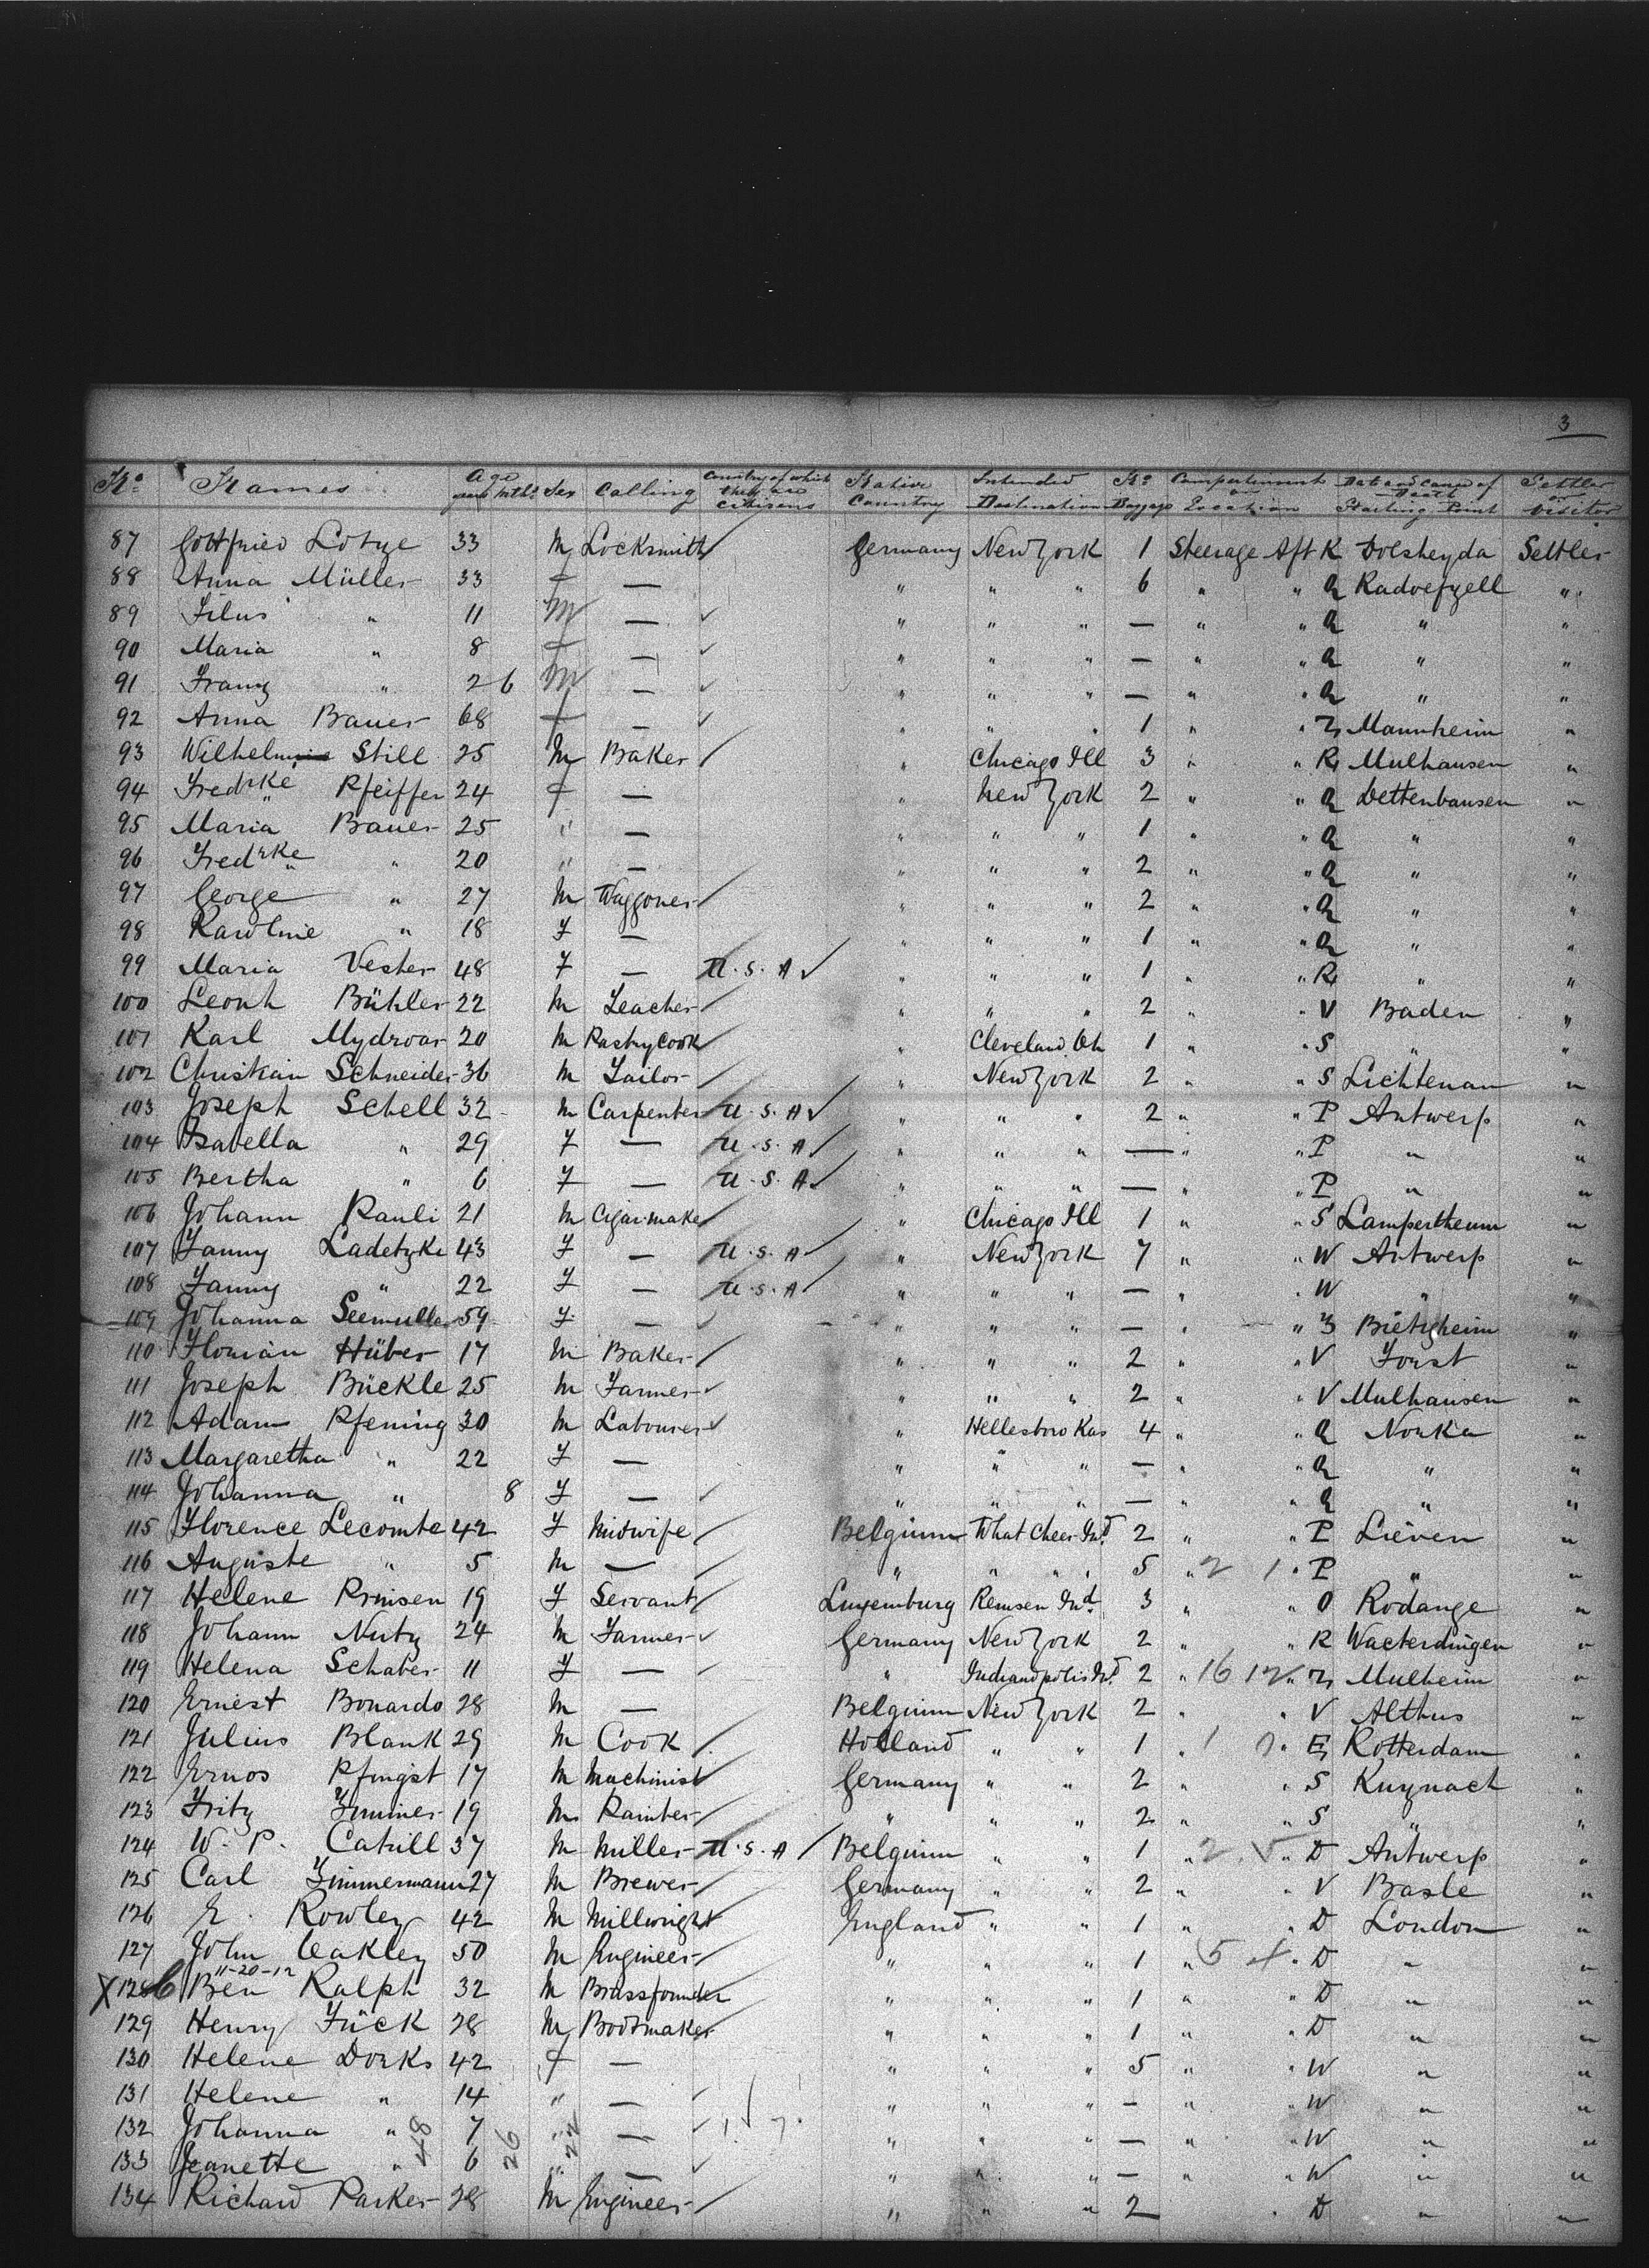 3
No. Names Age years Mths Sex Calling Country of which they are citizens Native Country Intended Destination No. Baggage Compartment or Location Date and Cause of Death Starting Point Settler or Visitor
87 Gottfried Lotze 33 M Locksmith Germany New York 1 Steerage Aft K Dolsheyda Settler
88 Anna Müller 33 f — " " " 6 " " Q Radoefzell "
89 " 11 M — " " " — " " Q " "
90 Maria " 8 f — " " " — " " Q " "
91 Franz " 2 6 M — " " " — " " Q " "
92 Anna Bauer 68 f — " " " 1 " " Mannheim "
93 Wilhelm Still 25 M Baker " Chicago Ill 3 " " R Mulhausen "
94 Fredrke Pfeiffer 24 f — " New York 2 " " Q Dettenhausen "
95 Maria Bauer 25 " — " " " 1 " " Q " "
96 Fredrke " 20 " — " " " 2 " " Q " "
97 George " 27 M Waggoner " " " 2 " " Q " "
98 Karoline " 18 F — " " " 1 " " Q " "
99 Maria Vester 48 F — U.S.A " " " 1 " " R " "
100 Leonh Bühler 22 M Teacher " " " 2 " " V Baden "
101 Karl 20 M Pastrycook " Cleveland Oh 1 " " S " "
102 Christian Schneider 36 M Tailor " New York 2 " " S Lichtenau "
103 Joseph Schell 32 M Carpenter U.S.A " " " 2 " " P Antwerp "
104 Isabella " 29 F — U.S.A " " " — " " P " "
105 Bertha " 6 F — U.S.A " " " — " " P " "
106 Johann Pauli 21 M Cigarmaker " Chicago Ill 1 " " S Lampertheim "
107 Fanny Ladetzke 43 F — U.S.A " New York 7 " " W Antwerp "
108 Fanny " 22 F — U.S.A " " " — " " W " "
109 Johanna Seemuller 59 F — " " " — " " Bietigheim "
110 Florian Hüber 17 M Baker " " " 2 " " V Forst "
111 Joseph Bückle 25 M Farmer " " " 2 " " V Mulhausen "
112 Adam Pfening 30 M Labourer " Hellesboro Kas 4 " " Q Norka "
113 Margaretha " 22 F — " " " — " " Q " "
114 Johanna " 8 F — " " " — " " Q " "
115 Florence Lecomte 42 F Midwife Belgium What Cheer Ind. 2 " " P Lieven "
116 Auguste " 5 M — " " " 5 " 2 1 " P " "
117 Helene 19 F Servant Luxemburg Remsen Ind. 3 " " O Rodange "
118 Johann Nutz 24 M Farmer Germany New York 2 " " R Wacterdingen "
119 Helena Schaber 11 F — " Indianapolis Ind. 2 " 16 12 " Mulheim "
120 Ernest Bonardo 28 M — Belgium New York 2 " " V Althus "
121 Julius Blank 29 M Cook Holland " " 1 " 1 " E Rotterdam "
122 Pfingst 17 M Machinist Germany " " 2 " " S Kuznach "
123 Fritz Zimmer 19 M Painter " " " 2 " " S " "
124 W. P. Cahill 37 M Miller U.S.A Belgium " " 1 " 2 " D Antwerp "
125 Carl Zimmermann 27 M Brewer Germany " " 2 " " V Basle "
126 E. Rowley 42 M Millwright England " " 1 " " D London "
127 John Oakley 50 M Engineer " " " 1 " 5 4 " D " "
11-20-12
X 128 Ben Ralph 32 M Brassfounder " " " 1 " " D " "
129 Henry Fück 28 M Bootmaker " " " 1 " " D " "
130 Helene Dorks 42 f — " " " 5 " " W " "
131 Helene " 14 " — " " " — " " W " "
132 Johanna " 7 " — " " " — " " W " "
133 Jeanette " 6 " — " " " — " " W " "
134 Richard Parker 28 M Engineer " " " 2 " D " "
48 26 22